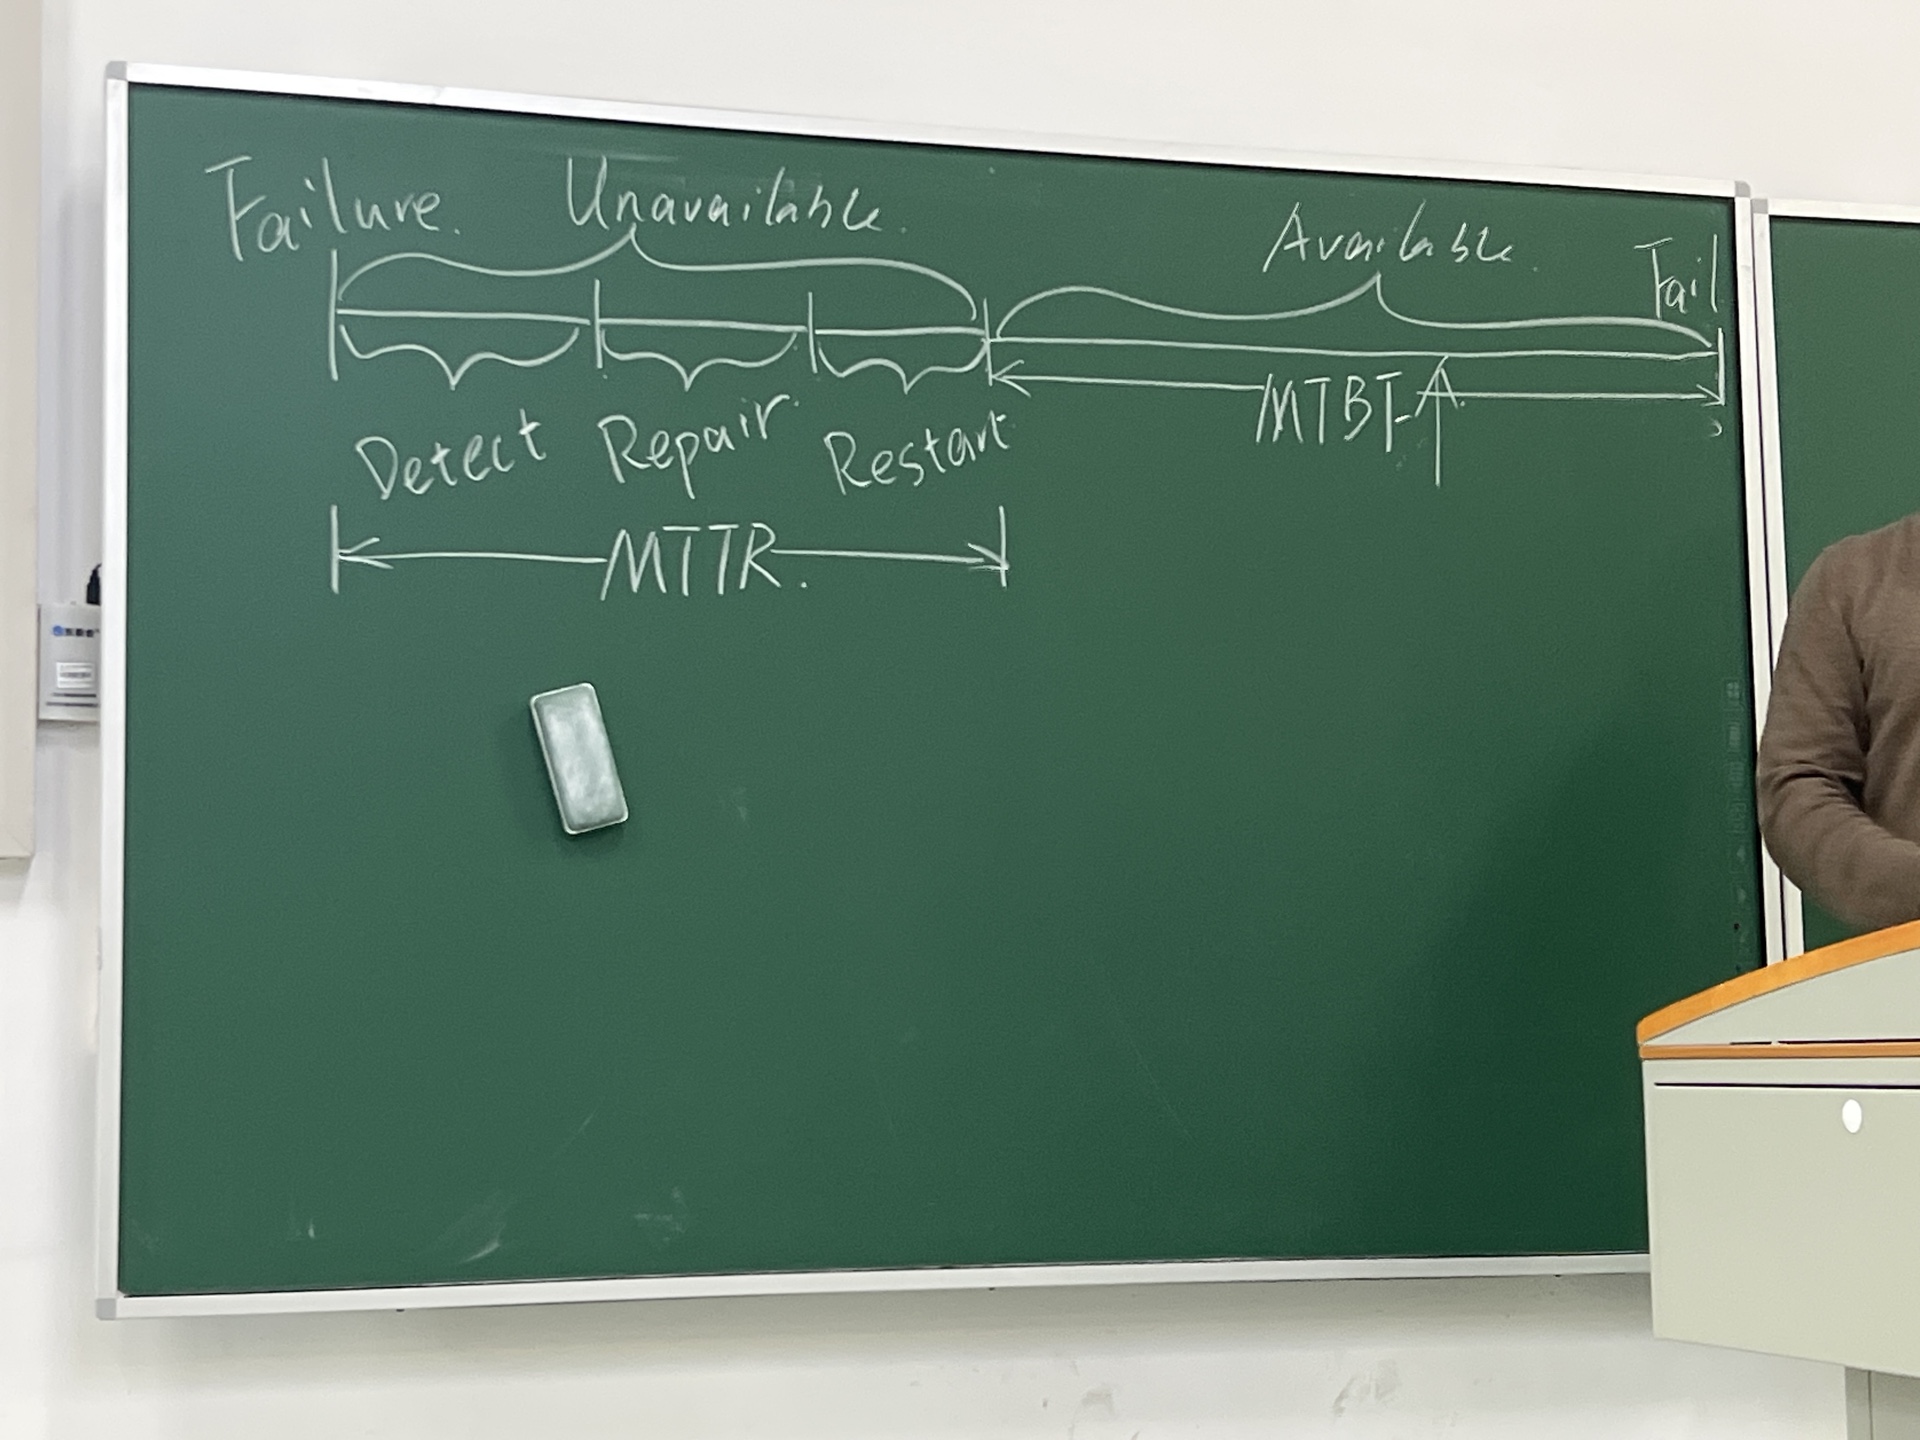 Failure. Unavailable. Available. Fail
Detect Repair. Restart MTBF
MTTR.